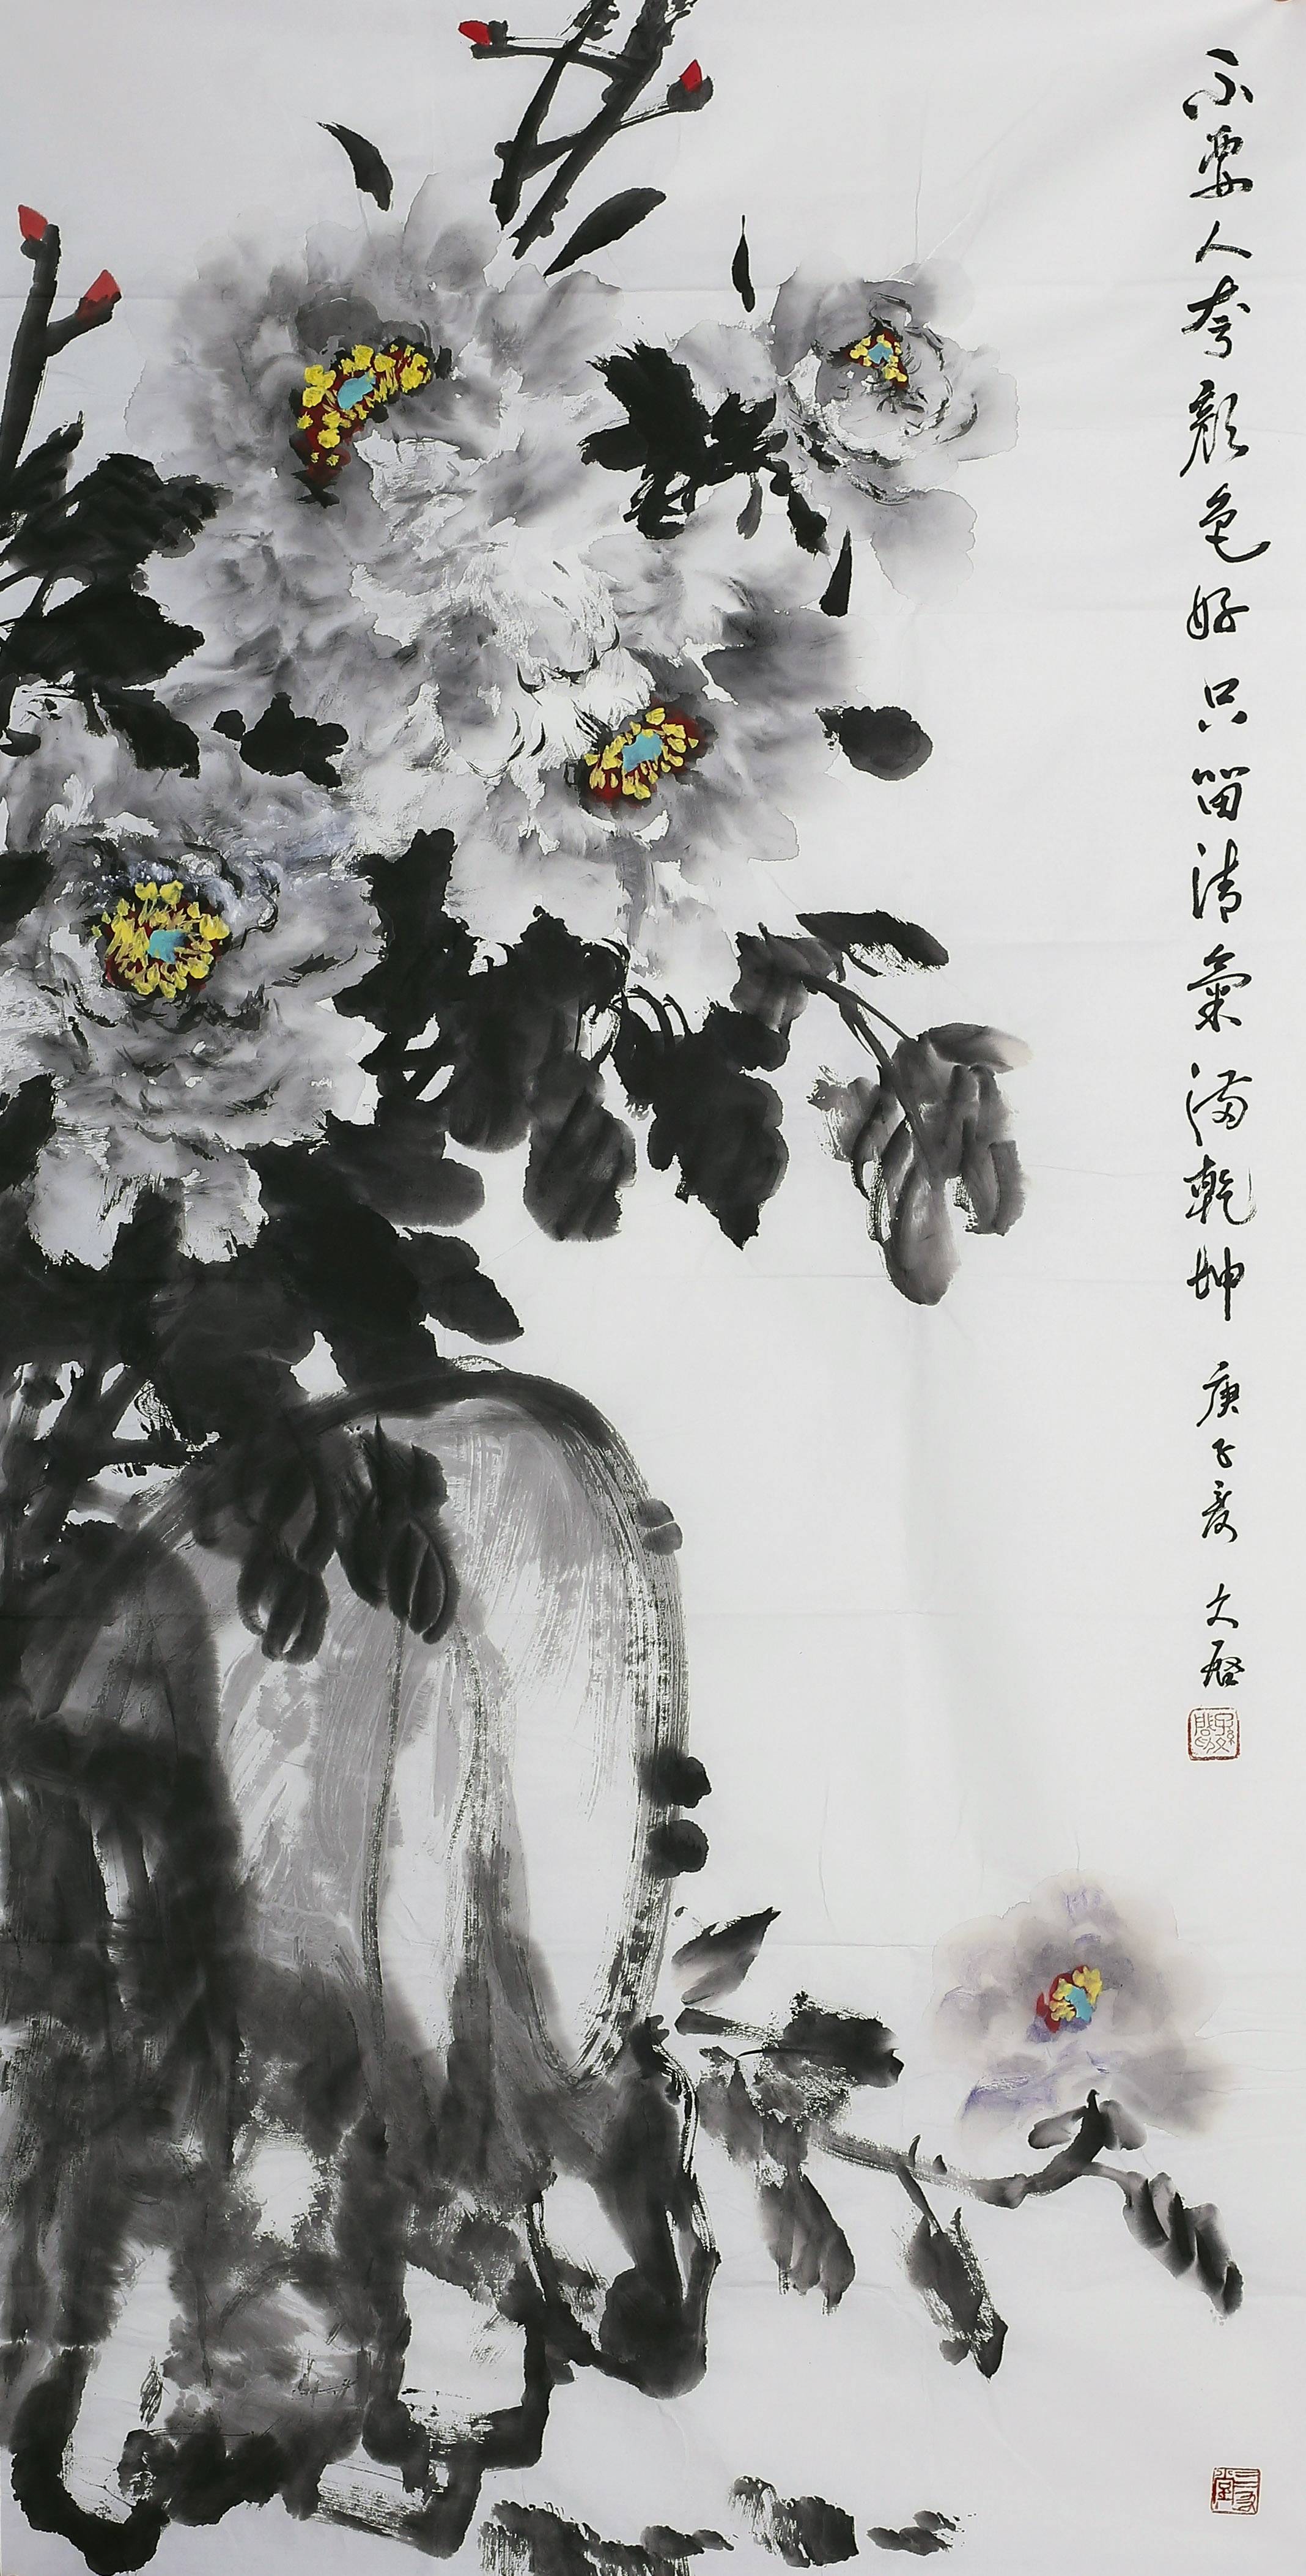 不要人夸颜色好只留清氣满乾坤 庚子夏 文啓